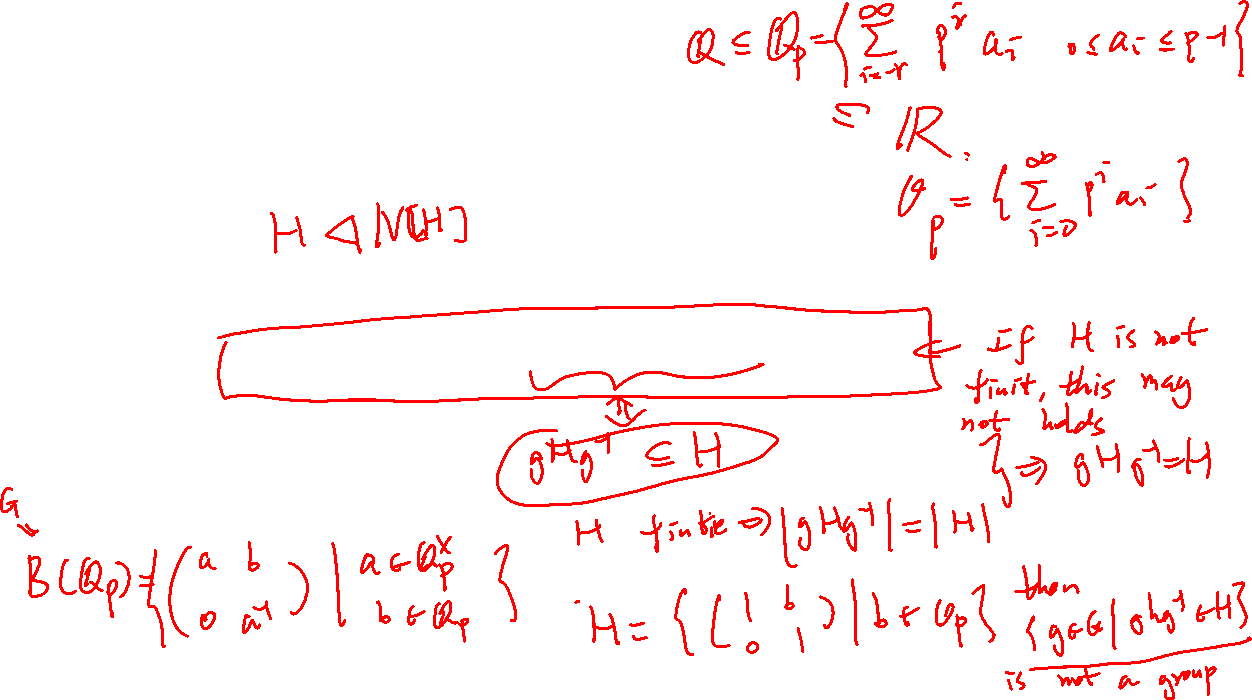 Q ⊆ Q_p = { ∑_{i=-r}^{∞} p^i a_i 0 ≤ a_i ≤ p-1 }
⊆ R.
O_p = { ∑_{i=0}^{∞} p^i a_i }
H ◁ N[H]
⇐ If H is not
finit, this may
not holds
gHg^{-1} ⊆ H
} ⇒ gHg^{-1} = H
H finite ⇒ |gHg^{-1}| = |H|
G
B(Q_p) = { ( a b ; 0 a^{-1} ) | a ∈ Q_p^× b ∈ Q_p }
H = { ( 1 b ; 0 1 ) | b ∈ O_p } then
{ g ∈ G | ghg^{-1} ∈ H }
is not a group